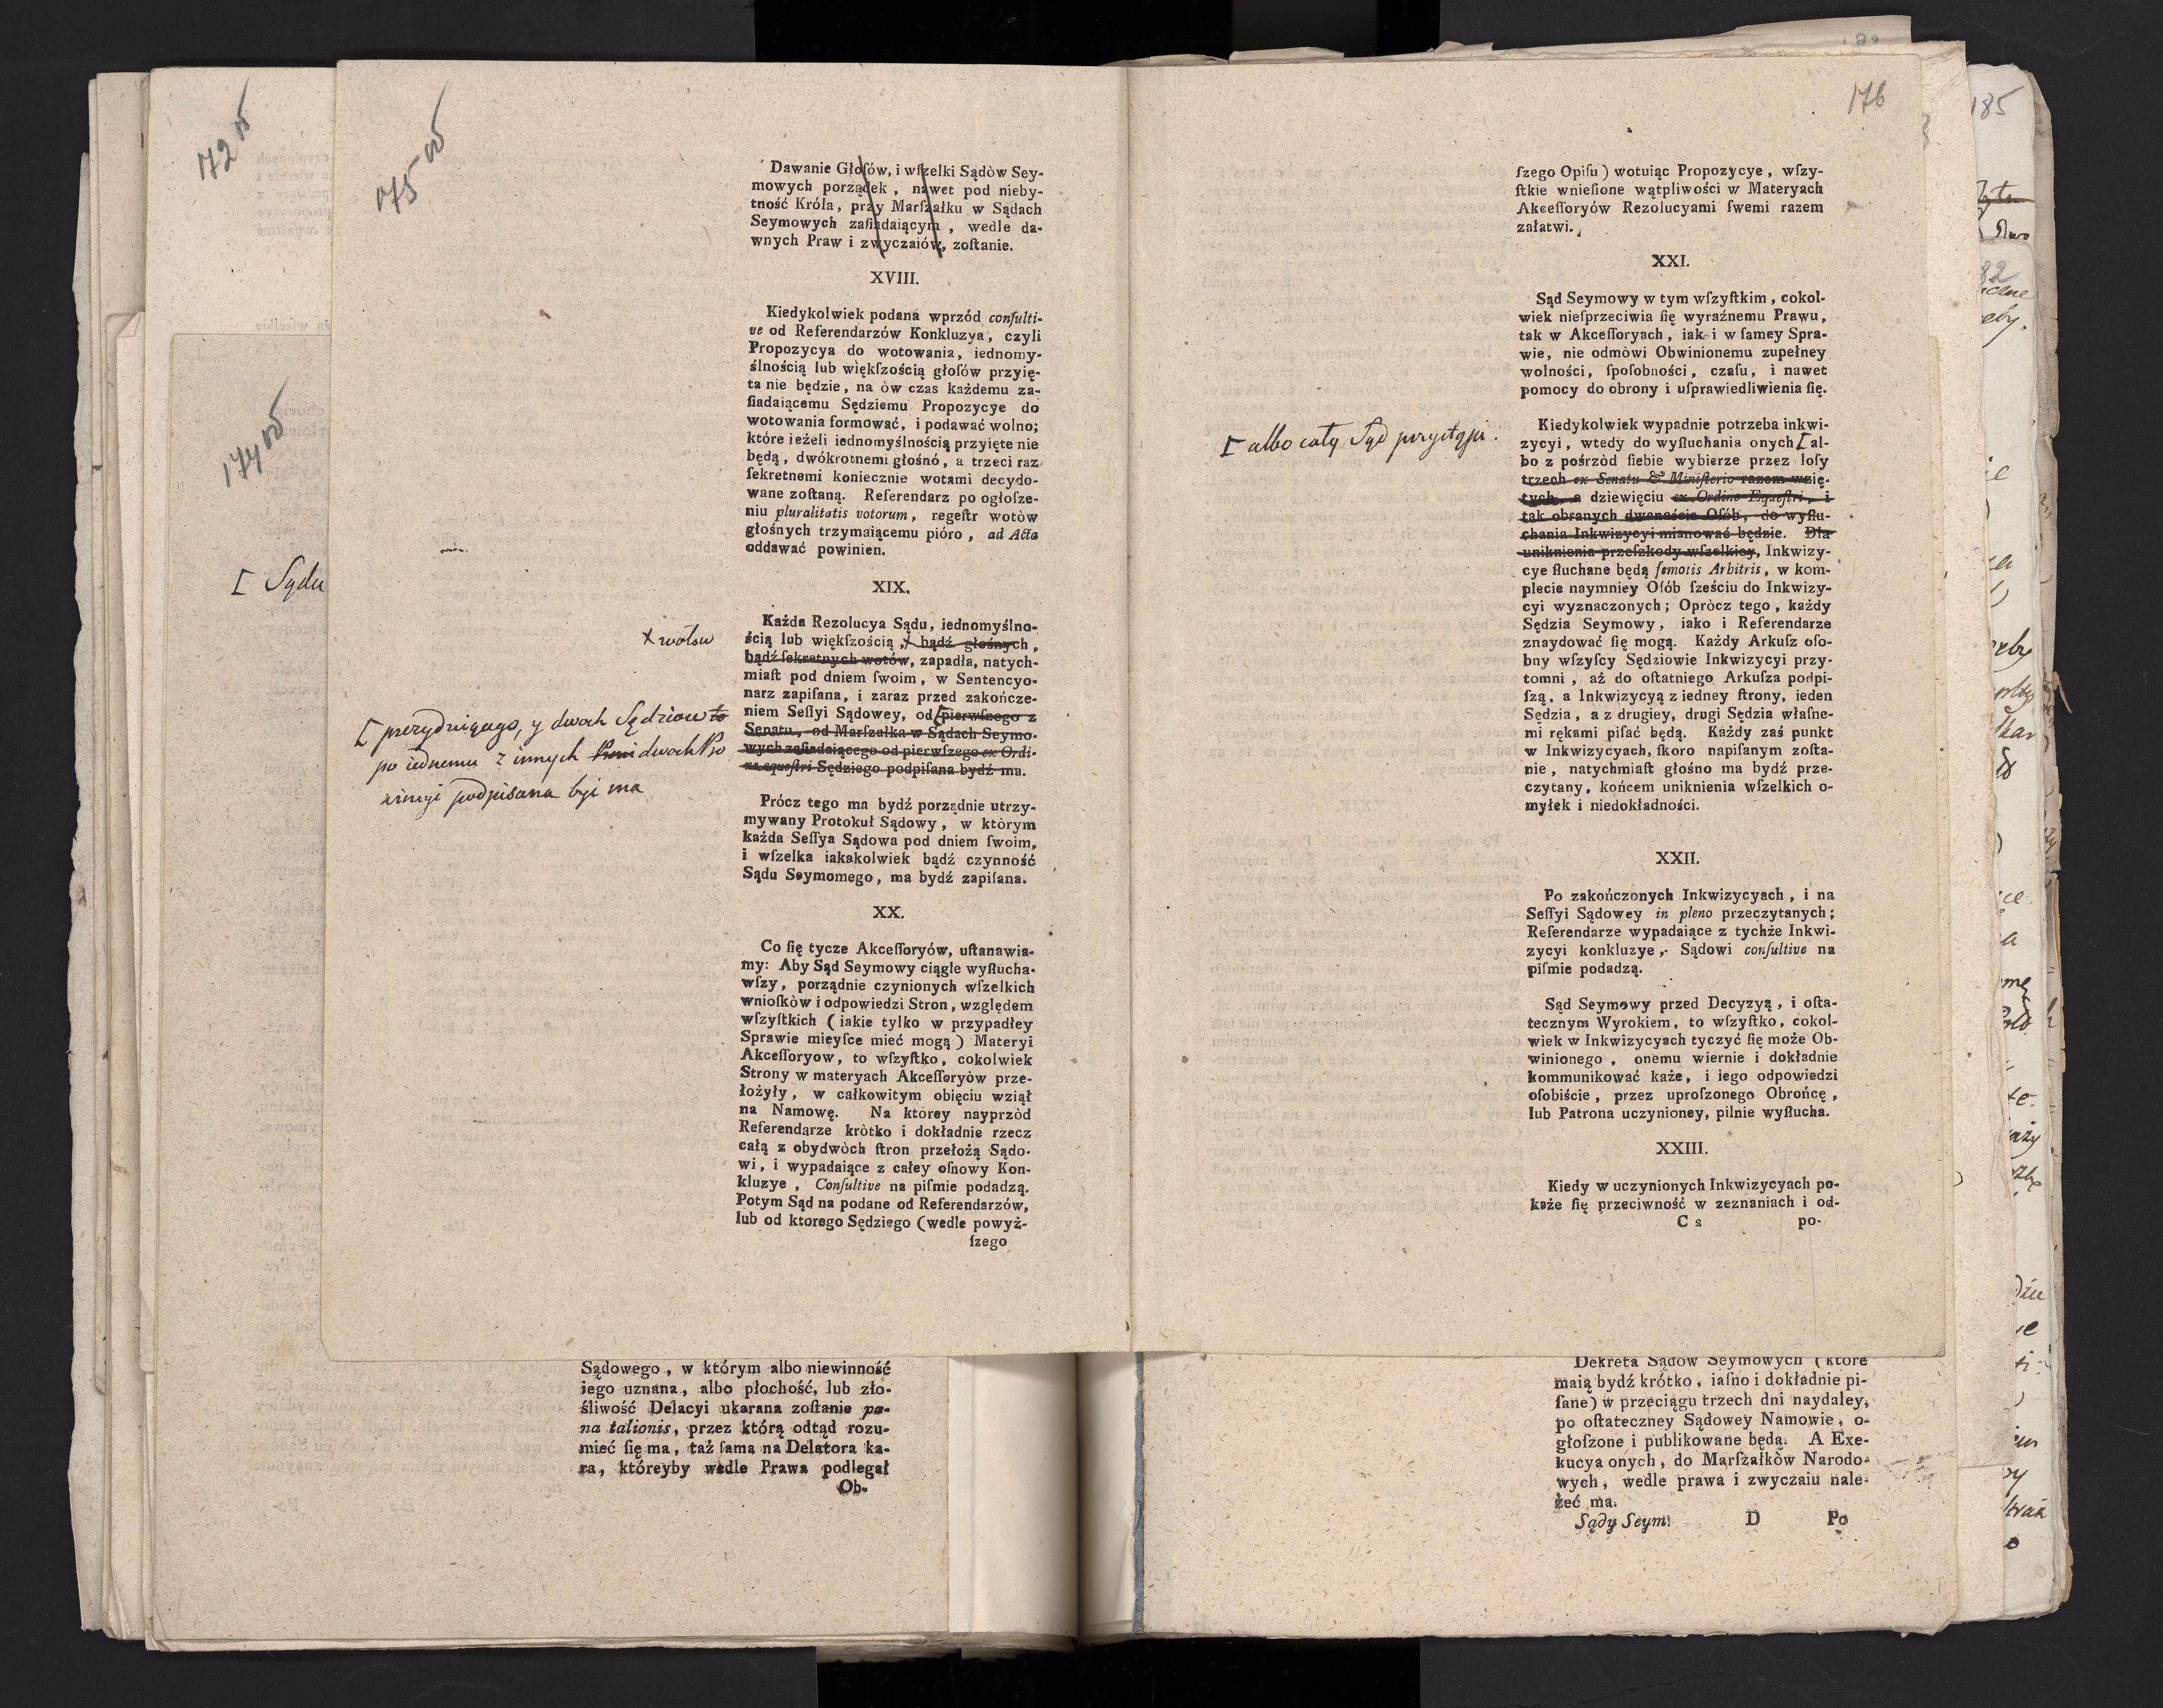 172 v
175 v
174 v
[ Sądu
Dawanie Głoſów, i wſzelki Sądòw Sey-
mowych porządek, nawet pod nieby-
tność Króla, przy Marſzałku w Sądach
Seymowych zaſiadaiącym, wedle da-
wnych Praw i zwyczaiów, zoſtanie.
XVIII.
Kiedykolwiek podana wprzód conſulti-
ve od Referendarzów Konkluzya, czyli
Propozycya do wotowania, iednomy-
ślnością lub więkſzością głoſów przyię-
ta nie będzie, na òw czas każdemu za-
ſiadaiącemu Sędziemu Propozycye do
wotowania formować, i podawać wolno;
które ieżeli iednomyślnością przyięte nie
będą, dwókrotnemi głośnó, a trzeci raz
ſekretnemi koniecznie wotami decydo-
wane zoſtaną. Referendarz po ogłoſze-
niu pluralitatis votorum, regeſtr wotòw
głośnych trzymaiącemu pióro, ad Acta
oddawać powinien.
XIX.
Każda Rezolucya Sądu, iednomyślno-
ścią lub więkſzością, bądź głośnych,
bądź ſekretnych wotów, zapadła, natych-
miaſt pod dniem ſwoim, w Sentencyo-
narz zapiſana, i zaraz przed zakończe-
niem Seſſyi Sądowey, od [pierwſzego z
Senatu, od Marſzałka w Sądach Seymo-
wych zaſiadaiącego od pierwſzego ex Ordi-
ne equeſtri Sędziego podpiſana bydź ma.
x wotow
[ prezyduiącego, y dwoch Sędziow to
po iednemu z innych dwoch Pro
wincyi podpisana byi ma
Prócz tego ma bydź porządnie utrzy-
mywany Protokuł Sądowy, w ktòrym
każda Seſſya Sądowa pod dniem ſwoim,
i wſzelka iakakolwiek bądź czynność
Sądu Seymomego, ma bydź zapiſana.
XX.
Co ſię tycze Akceſſoryów, uſtanawia-
my: Aby Sąd Seymowy ciągle wyſłucha-
wſzy, porządnie czynionych wſzelkich
wnioſkòw i odpowiedzi Stron, względem
wſzyſtkich (iakie tylko w przypadłey
Sprawie mieyſce mieć mogą) Materyi
Akceſſoryow, to wſzyſtko, cokolwiek
Strony w materyach Akceſſoryòw prze-
łożyły, w całkowitym obięciu wziął
na Namowę. Na ktorey nayprzòd
Referendarze kròtko i dokładnie rzecz
całą z obydwòch ſtron przełożą Sądo-
wi, i wypadaiące z całey oſnowy Kon-
kluzye, Conſultive na piſmie podadzą.
Potym Sąd na podane od Referendarzów,
lub od ktorego Sędziego (wedle powyż-
ſzego
Sądowego, w którym albo niewinność
iego uznana, albo płochość, lub zło-
śliwość Delacyi ukarana zoſtanie pæ-
na talionis, przez którą odtąd rozu-
mieć ſię ma, taż ſama na Delatora ka-
ra, któreyby wedle Prawa podlegał
Ob-
176
ſzego Opiſu) wotuiąc Propozycye, wſzy-
ſtkie wnieſione wątpliwości w Materyach
Akceſſoryów Rezolucyami ſwemi razem
załatwi.
XXI.
Sąd Seymowy w tym wſzyſtkim, cokol-
wiek nieſprzeciwia ſię wyraźnemu Prawu,
tak w Akceſſoryach, iak i w ſamey Spra-
wie, nie odmòwi Obwinionemu zupełney
wolności, ſpoſobności, czaſu, i nawet
pomocy do obrony i uſprawiedliwienia ſię.
Kiedykolwiek wypadnie potrzeba inkwi-
zycyi, wtedy do wyſłuchania onych [al-
bo z pośrzòd ſiebie wybierze przez loſy
trzech ex Senatu & Miniſterio razem wzię-
tych, a dziewięciu ex Ordine Equeſtri, i
tak obranych dwanaście Oſób, do wyſłu-
chania Inkwizycyi mianować będzie. Dla
uniknienia przeſzkody wſzelkiey, Inkwizy-
cye ſłuchane będą ſemotis Arbitris, w kom-
plecie naymniey Oſób ſześciu do Inkwizy-
cyi wyznaczonych; Opròcz tego, każdy
Sędzia Seymowy, iako i Referendarze
znaydować ſię mogą. Każdy Arkuſz oſo-
bny wſzyſcy Sędziowie Inkwizycyi przy-
tomni, aż do oſtatniego Arkuſza podpi-
ſzą, a Inkwizycyą z iedney ſtrony, ieden
Sędzia, a z drugiey, drugi Sędzia właſne-
mi rękami piſać będą. Każdy zaś punkt
w Inkwizycyach, ſkoro napiſanym zoſta-
nie, natychmiaſt głośno ma bydź prze-
czytany, końcem uniknienia wſzelkich o-
myłek i niedokładności.
[ albo cały Sąd przystąpi.
XXII.
Po zakończonych Inkwizycyach, i na
Seſſyi Sądowey in pleno przeczytanych;
Referendarze wypadaiące z tychże Inkwi-
zycyi konkluzye, Sądowi conſultive na
piſmie podadzą.
Sąd Seymowy przed Decyzyą, i oſta-
tecznym Wyrokiem, to wſzyſtko, cokol-
wiek w Inkwizycyach tyczyć ſię może Ob-
winionego, onemu wiernie i dokładnie
kommunikować każe, i iego odpowiedzi
oſobiście, przez uproſzonego Obrońcę,
lub Patrona uczynioney, pilnie wyſłucha.
XXIII.
Kiedy w uczynionych Inkwizycyach po-
każe ſię przeciwność w zeznaniach i od-
C 2 po-
Dekreta Sądow Seymowych (ktore
maią bydź krótko, iaſno i dokładnie pi-
ſane) w przeciągu trzech dni naydaley,
po oſtateczney Sądowey Namowie, o-
głoſzone i publikowane będą. A Exe-
kucya onych, do Marſzałkòw Narodo-
wych, wedle prawa i zwyczaiu nale-
żeć ma.
Sądy Seym. D Po
185
182